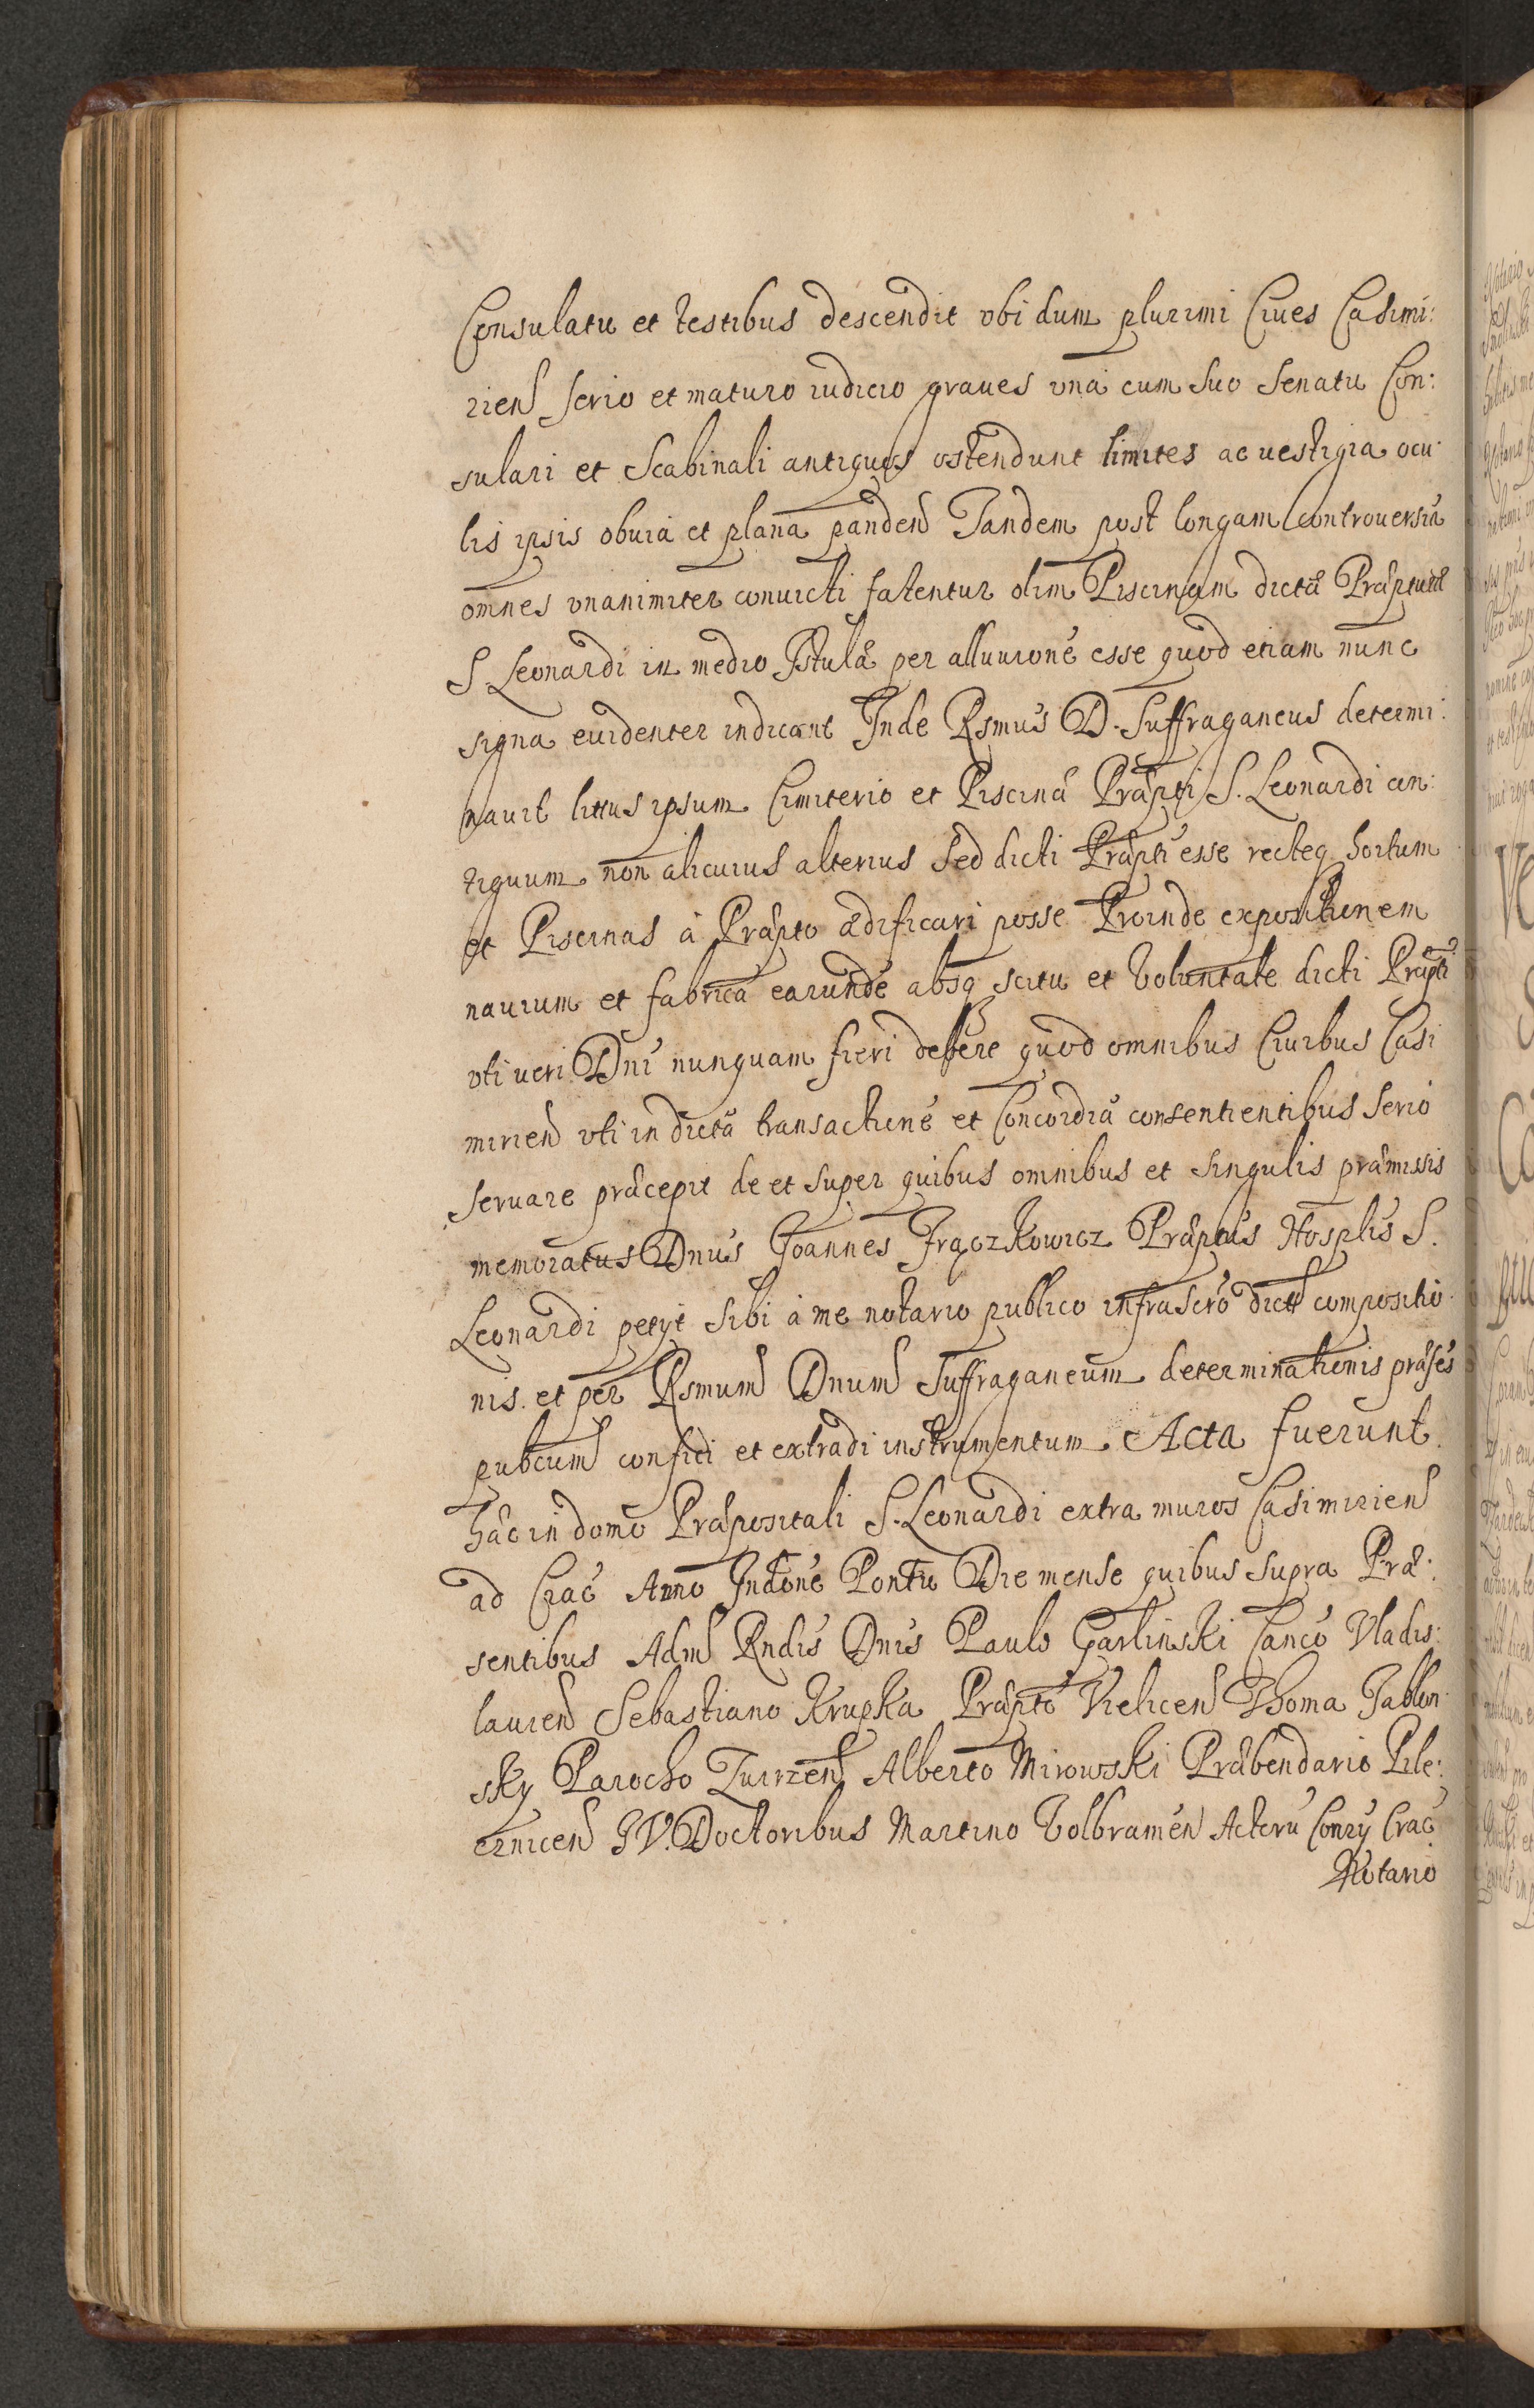 Consulatu et testibus descendit vbi dum plurimi Ciues Casimi:
rien̄ serio et maturo iudicio graues vnà cum suo Senatu Con:
sulari et Scabinali antiquos ostendunt limites ac uestigia ocu:
lis ipsis obuia et plana panden̄ Tandem post longam controuersiā
omnes vnanimiter conuicti fatentur olim Piscinam dictæ
S. Leonardi in medio Istulæ per alluuionē esse quod etiam nunc
signa euidenter indicant Inde Rsmus D. Suffraganeus determi:
nauit littus ipsum Cimiterio et Piscinæ Præpti S. Leonardi con:
tiguum non alicuius alterius sed dicti Præpti esse recteq hortum
et Piscinas à Præpto ædificari posse Proinde expositionem
nauium et fabricā earundē absq scitu et voluntate dicti Præpti
vti ueri Dni nunquam fieri debere quod omnibus Ciuibus Casi
mirien̄ vti in dictā transactionē et Concordiā consentientibus serio
seruare præcepit de et super quibus omnibus et singulis præmissis
memoratus Dnus Joannes Frączkowicz Præptus Hosplis S.
Leonardi petijt sibi à me notario publico infrascro dictæ compositio
nis. et per Rsmum Dnum Suffraganeum determinationis præsēs
pubcum confici et extradi instrumentum Acta fuerunt
hæc in domo Præpositali S. Leonardi extra muros Casimirien̄
ad Crac̄ Anno Indōnē Pontu Die mense quibus supra Præ:
sentibus Adm̄ Rndis Dnis Paulo Garlinski Canco Vladis:
lauien̄ Sebastiano Krupka Præpto Vielicen̄ Thoma Jablon:
sky Parocho Alberto Mirowski Præbendario Pile:
cznicen̄ J V. Doctoribus Martino Volbramēn Actoru Conrÿ Crac̄
Notario